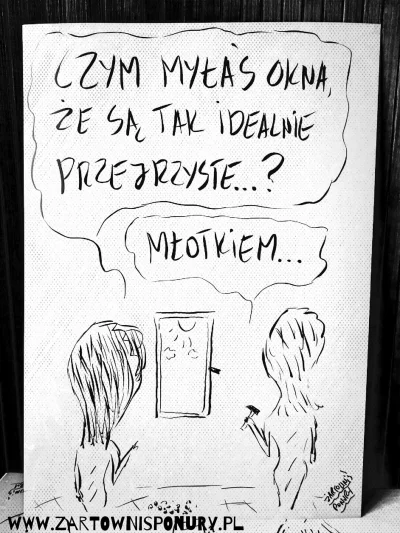 CZYM MYŁAŚ OKNA,
ŻE SĄ TAK IDEALNIE
PRZEJRZYSTE...?
MŁOTKIEM...
ŻARTOWNIŚ
PONURY
WWW.ZARTOWNISPONURY.PL